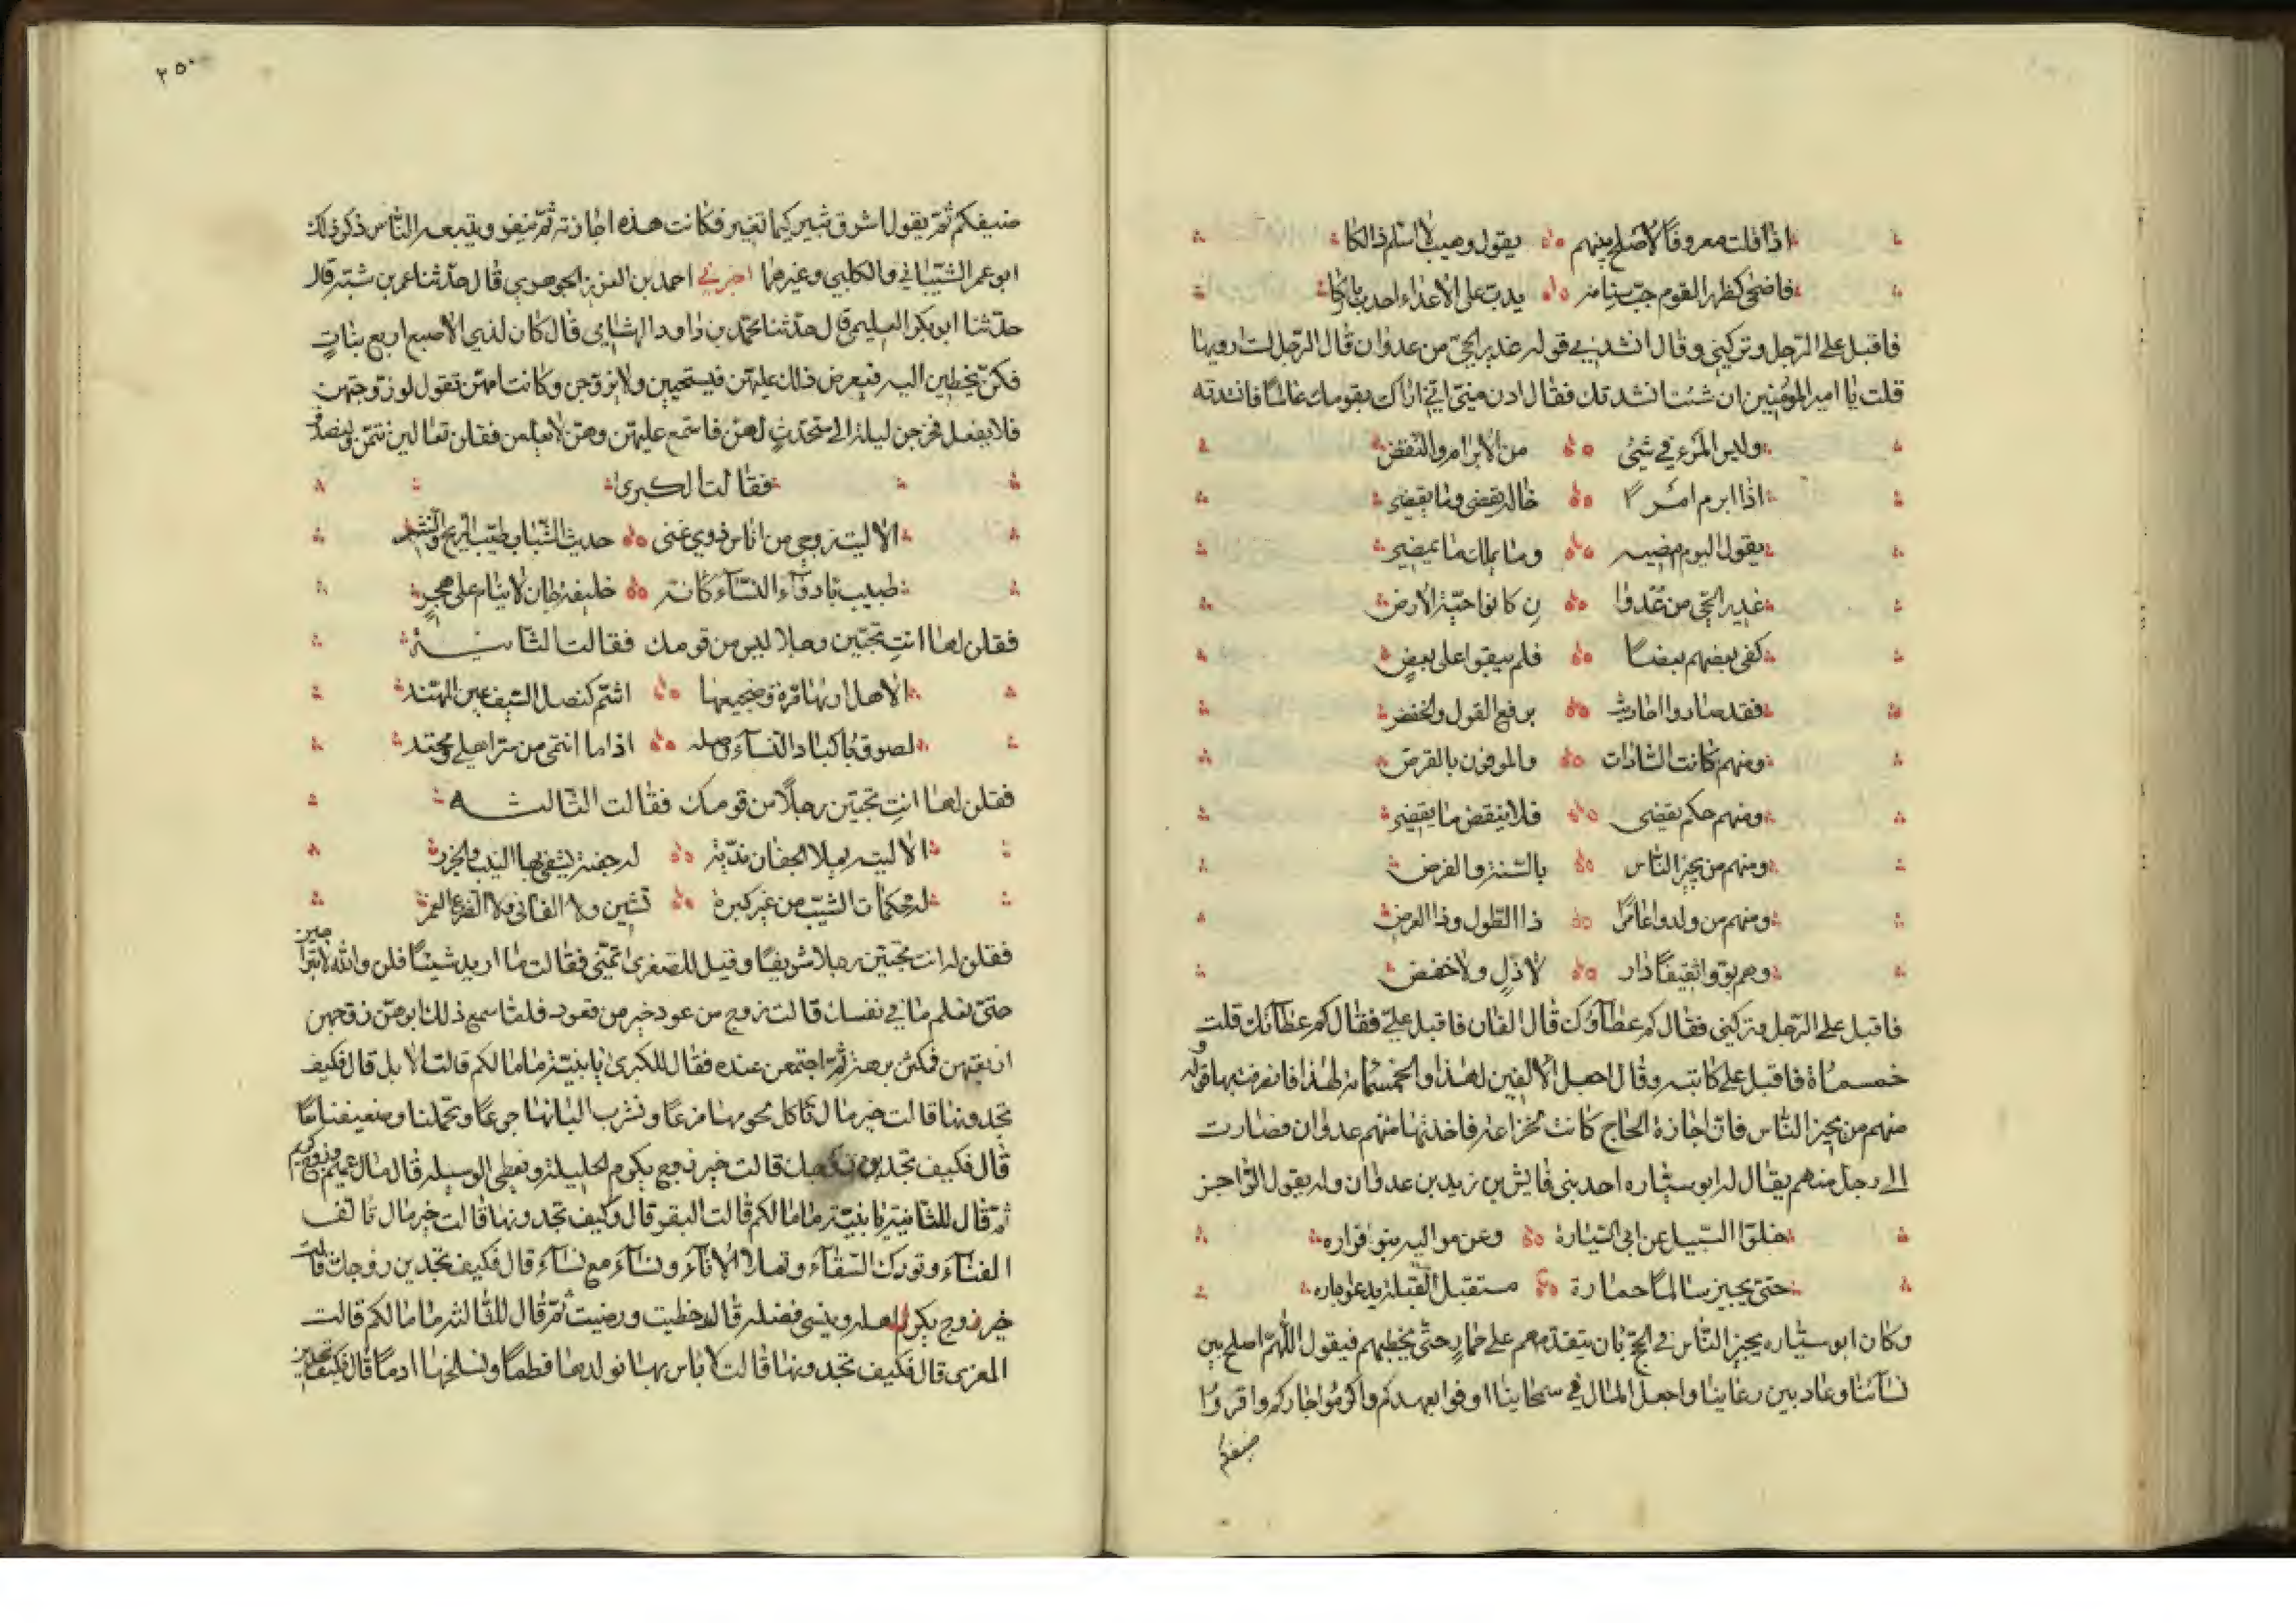 اذا قلت معروفا لاصلح بينهم يقول وهيب لا اسالم ذالكا
فاضحى كظهر القوم جب سنامه يدب على الاعداء احدب باركا
فاقبل على الرجل وتركني وقال انشدني قوله عذير الحي من عدوان قال الرجل لست ارويها
قلت يا امير المؤمنين ان شئت انشدتك فقال ادن مني اني اراك بقومك عالما فانشدته
وليس المرء في شيئ من الابرام والنقض
اذا ابرم امرا خاله يقضى وما يقضي
يقول اليوم امضيه وما يملك ما يمضي
عذير الحي من عدوا ن كانوا حية الارض
كفى بعضهم بعضا فلم يبقوا على بعض
فقد صاروا احاديث برفع القول والخفض
ومنهم كانت السادات والموفون بالقرض
ومنهم حكم يقضى فلا ينقض ما يقضي
ومنهم من يجيز الناس بالسنة والفرض
ومنهم من ولدوا عامرا ذا الطول وذا العرض
وهم بوّوا ثقيفا دار لا ذل ولا خفض
فاقبل على الرجل وتركني فقال كم عطاؤك قال الفان فاقبل علي فقال كم عطاؤك قلت
خمسماة فاقبل على كاتبه وقال اجعل الالفين لهذا والخمسمائة لهذا فانصرفت بها وقوله
منهم من يجيز الناس فان اجازة الحاج كانت لخزاعة فاخذتها منهم عدوان فصارت
الى رجل منهم يقال له ابو سيّاره احد بني قايش بن زيد بن عدوان وله يقول الراجز
خلوا السبيل عن ابي السيارة وعن مواليه بنو قزاره
حتى يجيز سالما حمارة مستقبل القبلة يدعو جاره
وكان ابو سيّاره يجيز الناس في الحج بان يتقدمهم على حمار حتى يخطبهم فيقول اللهم اصلح بين
نسائنا وعاد بين رعاينا واجعل المال في سمحاينا اوفوا بعهدكم واكرموا جاركم واقروا
ضيفكم
٢٥٠
ضيفكم ثم يقول اشرق ثبير كيما نغير فكانت هذه اجازته ثم ينفر ويتبعه الناس ذكر ذلك
ابو عمر الشيباني والكلبي وغيرهما اخبرني احمد بن العزيز الجوهري قال حدثنا عمر بن شبة قال
حدثنا ابو بكر العليمي قال حدثنا محمد بن داود الهشامي قال كان لذي الاصبع اربع بنات
فكن يخطبن اليه فيعرض ذلك عليهن فيستحيين ولا يزوجن وكانت امهن تقول لو زوجتهن
فلا يفعل فخرجن ليلة الى متحدث لهن فاستمع عليهن وهن لا يعلمن فقلن تعالين نتمن ولنصدق
فقالت الكبرى
الا ليت زوجي من اناس ذوي غنى حديث الشباب طيب الريح والنشر
طبيب بادواء النساء كانه خليفة جان لا ينام على هجر
فقلن لها انت تحبين رجلا ليس من قومك فقالت الثانيـة
الا هل اراها مرة وضجيعها اشم كنصل السيف عين المهند
لصوق باكباد النساء واصله اذا ما انتمى من سر اهلي ومحتد
فقلن لها انت تحبين رجلا من قومك فقالت الثالثه
الا ليته يملا الجفان نديّة له جفنة يشقى بها النيب والجزر
له حكمات الشيب من غير كبرة تشين ولا الفاني ولا الضرع الغمر
فقلن له انت تحبين رجلا شريفا وقيل للصغرى تمني فقالت ما اريد شيئا قلن والله لا تبرحين
حتى نعلم ما في نفسك قالت زوج من عود خير من قعود فلما سمع ذلك ابوهن زوجهن
اربعتهن فمكثن برهة ثم اجتمعن عنده فقال للكبرى يا بنية ما مالكم قالت الابل قال فكيف
تجدونها قالت خير مال ناكل لحومها مزعا ونشرب البانها جرعا وتحملنا وضعيفنا معا
قال فكيف تجدين زوجك قالت خير زوج يكرم الحليلة ويعطي الوسيلة قال مال عميم وزوج كريم
ثم قال للثانية يا بنية ما مالكم قالت البقر قال وكيف تجدونها قالت خير مال تالف
الفناء وتودك السقاء وتملا الاناء ونساء مع نساء قال فكيف تجدين زوجك قالت
خير زوج يكرم اهله وينسى فضله قال حظيت ورضيت ثم قال للثالثة ما مالكم قالت
المعزى قال فكيف تجدونها قالت لا باس بها نولدها فطما ونسلخها ادما قال فكيف تجدين